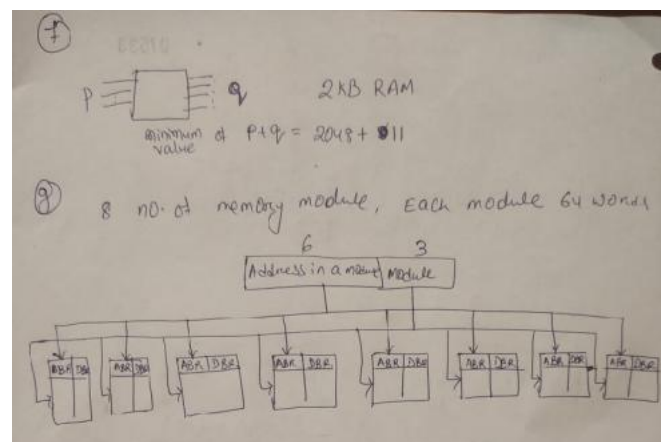 7
P q 2KB RAM
minimum value of P+q = 2048 + 11
8 8 no. of memory module, Each module 64 words
6 3
Address in a module Module
ABR DBR ABR DBR ABR DBR ABR DBR ABR DBR ABR DBR ABR DBR ABR DBR